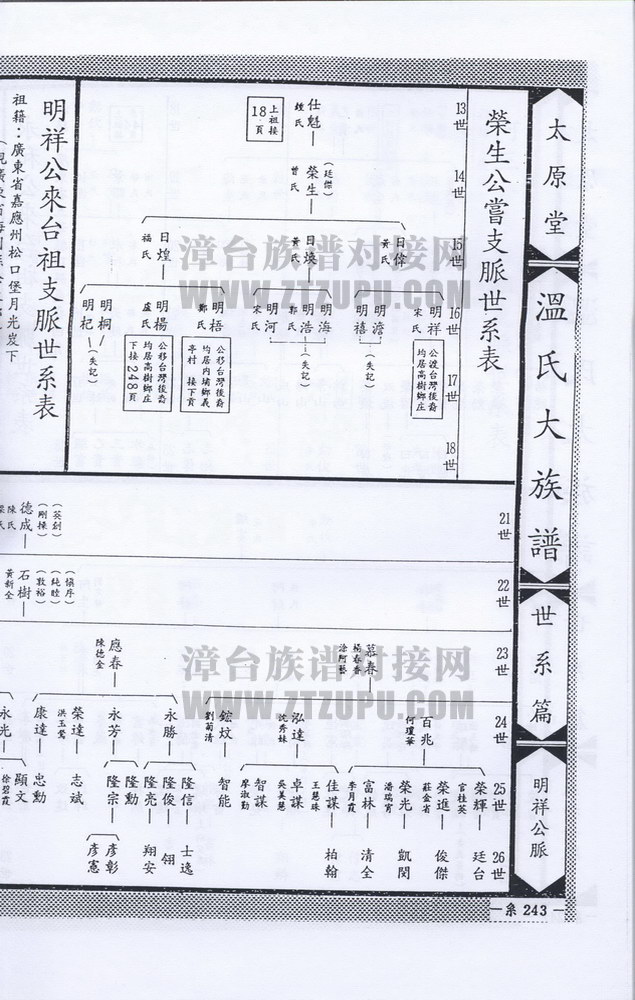 太原堂
溫氏大族譜
世系篇
明祥公脈
榮生公嘗支脈世系表
13世
14世
15世
16世
17世
18世
仕魁
鍾氏
上祖接
18頁
(廷傑)
榮生
曾氏
日偉
黃氏
日燒
黃氏
日煌
福氏
明祥
宋氏
公渡台灣後裔
均居高樹鄉庄
明澹
明禧
(失記)
明海
明浩
郭氏
明河
宋氏
(失記)
明梧
鄭氏
公移台灣後裔
均居內埔鄉義
亭村 接下頁
明揚
盧氏
公移台灣後裔
均居高樹鄉庄
下接248頁
明桐
明杞
(失記)
明祥公來台祖支脈世系表
祖籍:廣東省嘉應州松口堡月光岌下
21世
22世
23世
24世
25世
26世
(英創)
(剛操)
德成
陳氏
(慎序)
(純睦)
(敦裕)
石樹
黃新全
慕春
楊春香
涂阿藝
應春
陳德金
百兆
何瓊華
泓達
沈秀妹
鋐炆
劉菊清
永勝
永芳
榮達
洪玉鸞
康達
永光
榮輝
官桂英
廷台
榮進
莊金省
俊傑
榮光
潘瑞霄
凱閔
富林
李月霞
清全
佳謀
王慧珠
柏翰
卓謀
吳美慧
智謀
廖淑勤
智能
隆信
士逸
隆俊
翎
隆亮
翔安
隆勳
隆宗
彥彰
彥憲
志斌
忠勳
顯文
徐碧霞
系 243
漳台族谱对接网
WWW.ZTZUPU.COM
漳台族谱对接网
WWW.ZTZUPU.COM